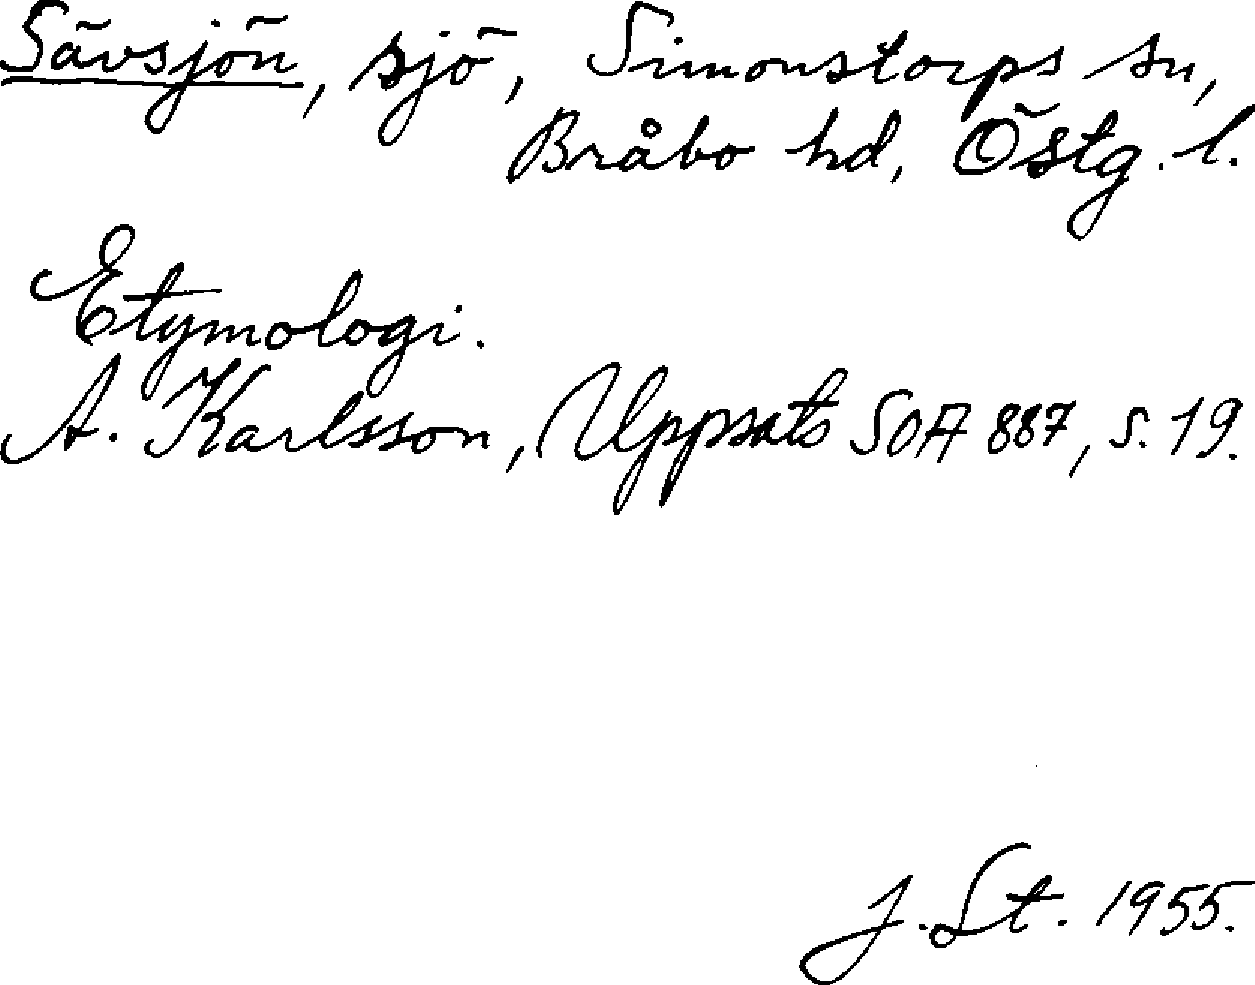 Sävsjön, sjö, Simonstorps sn,
Bråbo hd, Östg. l.
Etymologi.
A. Karlsson, Uppsats SOA 887, s. 19.
J. St. 1955.